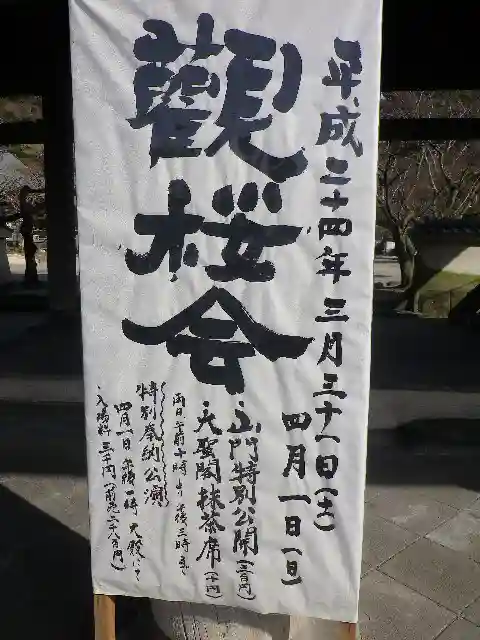 平成二十四年三月三十一日(土)
四月一日(日)
觀桜会
・山門特別公開(三百円)
・大聖閣抹茶席(千円)
両日午前十時より午後三時まで
特別奉納公演
四月一日午後一時大殿にて
・入場料三千円(前売二千八百円)